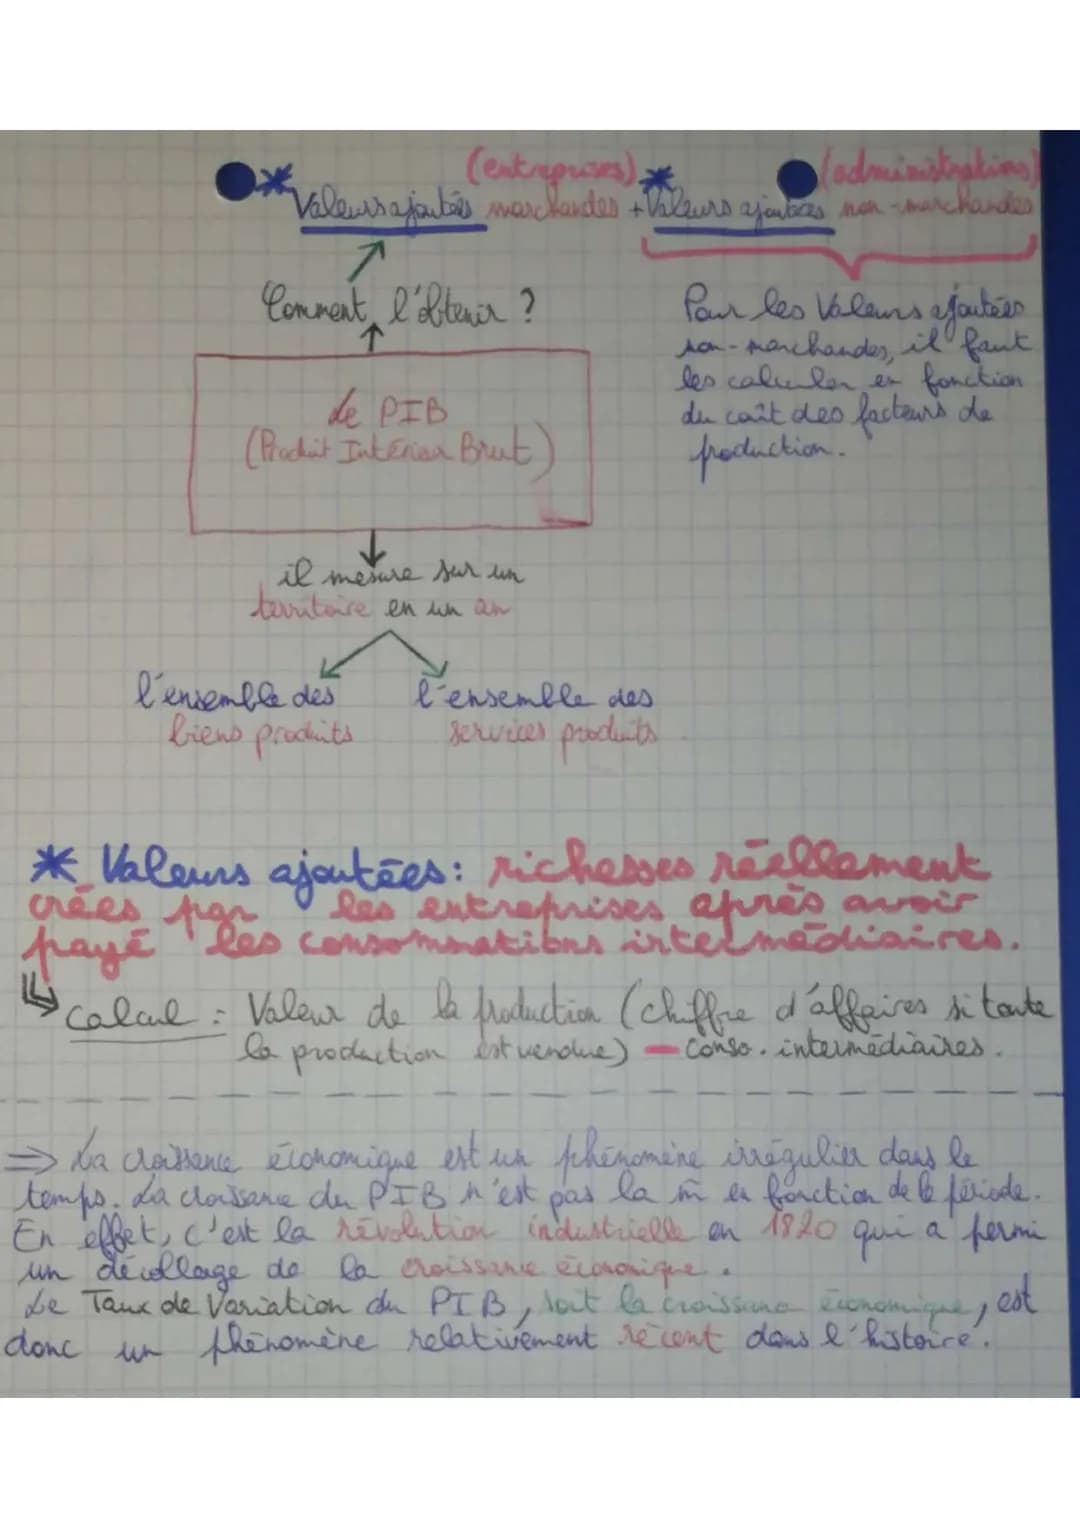 (entreprises) (administrations)
* Valeurs ajoutées marchandes + * Valeurs ajoutées non-marchandes
Comment l'obtenir ?
Pour les Valeurs ajoutées
non-marchandes, il faut
les calculer en fonction
du coût des facteurs de
production.
Le PIB
(Produit Intérieur Brut)
il mesure sur un
territoire en un an
l'ensemble des
biens produits
l'ensemble des
services produits
* Valeurs ajoutées: richesses réellement
crées par les entreprises après avoir
payé les consommations intermédiaires.
calcul : Valeur de la production (chiffre d'affaires si toute
la production est vendue) - conso. intermédiaires.
=> La croissance économique est un phénomène irrégulier dans le
temps. La croissance du PIB n'est pas la m̄ en fonction de la période.
En effet, c'est la révolution industrielle en 1820 qui a permi
un décollage de la croissance économique.
Le Taux de Variation du PIB, soit la croissance économique, est
donc un phénomène relativement récent dans l'histoire.